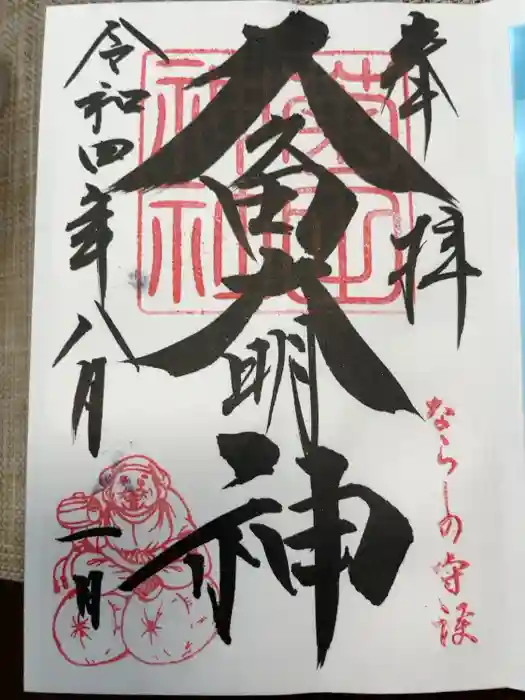 奉拝
久久田大明神
菊田
神社
ならしの守護
令和四年八月
一日